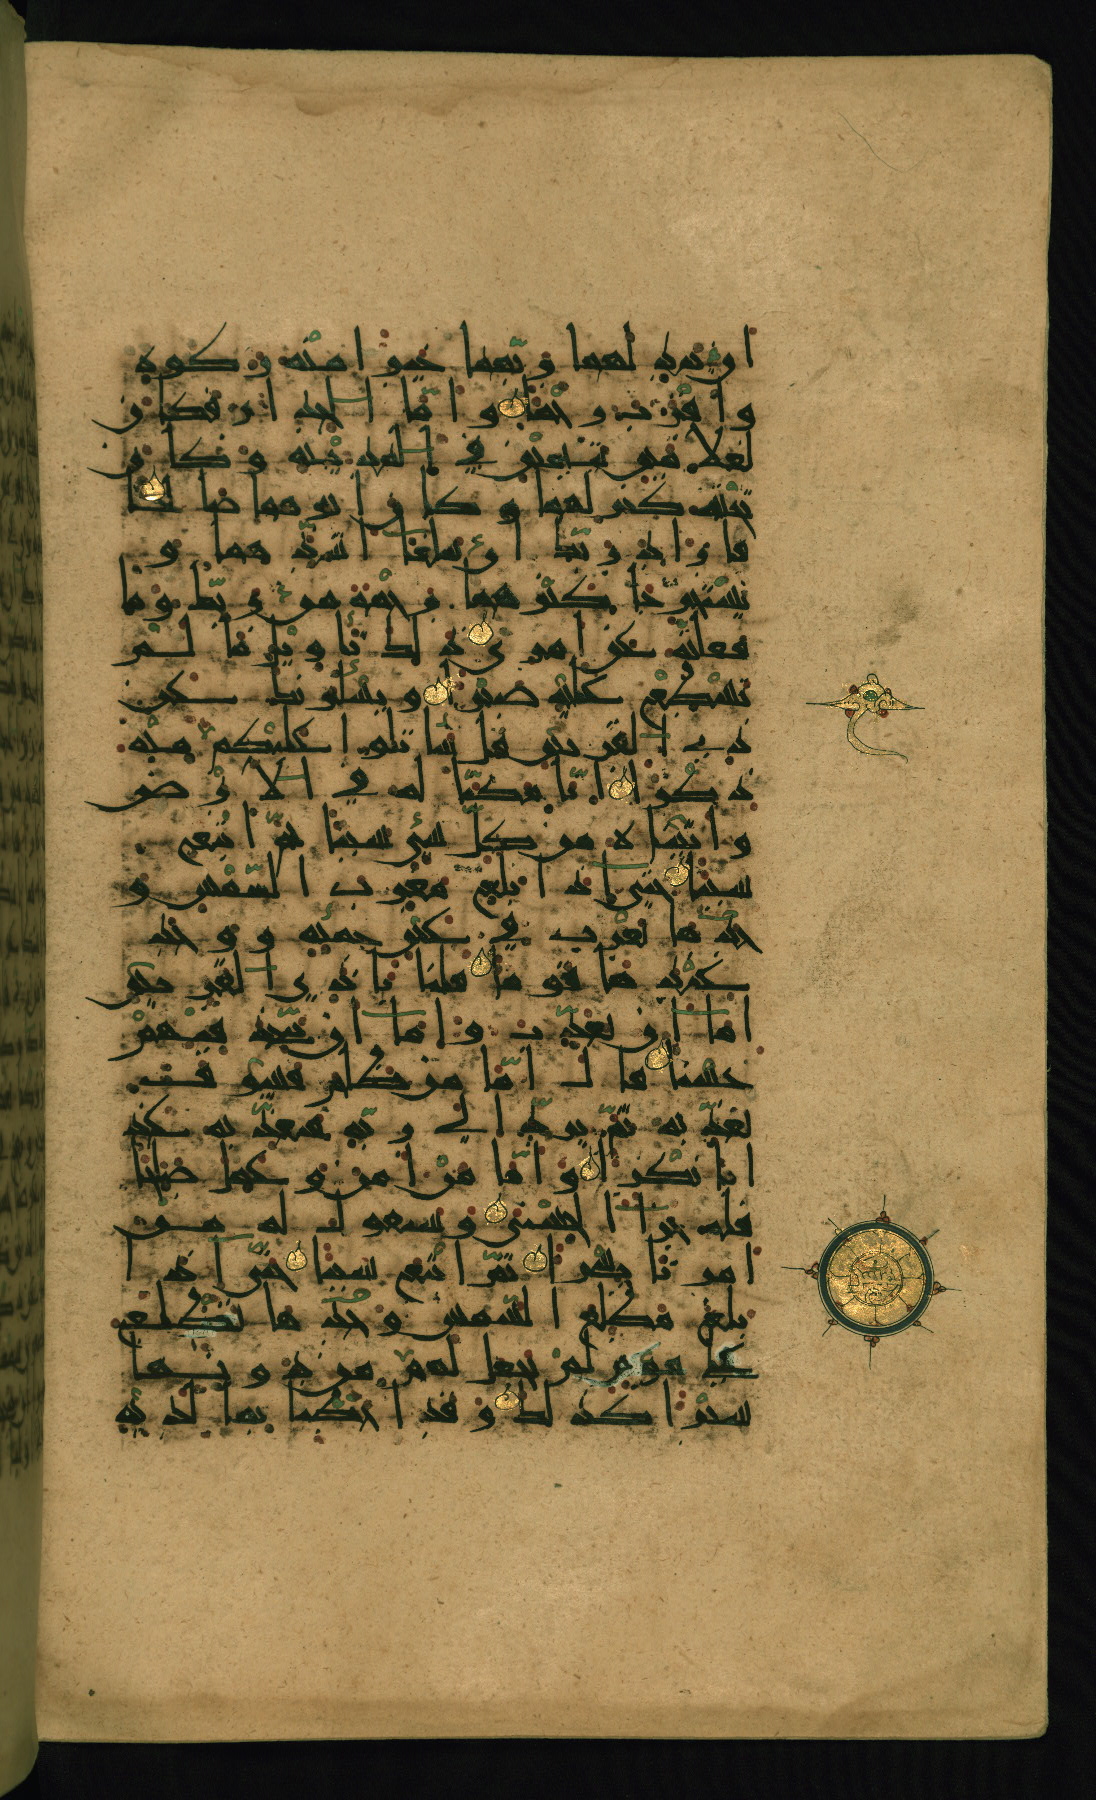 ان يبدلهما ربهما خيرا منه زكوة
واقرب رحما واما الجدار فكان
لغلامين يتيمين في المدينة وكان
تحته كنز لهما وكان ابوهما صالحا
فاراد ربك ان يبلغا اشدهما و
يستخرجا كنزهما رحمة من ربك وما
فعلته عن امري ذلك تاويل ما لم
تسطع عليه صبرا ويسئلونك عن
ذي القرنين قل ساتلوا عليكم منه
ذكرا انا مكنا له في الارض
واتيناه من كل شئ سببا فاتبع
سببا حتى اذا بلغ مغرب الشمس و
جدها تغرب في عين حمئة ووجد
عندها قوما قلنا يا ذي القرنين
اما ان تعذب واما ان تتخذ فيهم
حسنا قال اما من ظلم فسوف
نعذبه ثم يرد الى ربه فيعذبه عذ
ابا نكرا واما من امن وعمل صالحا
فله جزاء الحسنى وسنقول له من
امرنا يسرا ثم اتبع سببا حتى اذا
بلغ مطلع الشمس وجدها تطلع
على قوم لم نجعل لهم من دونها
سترا كذلك وقد احطنا بما لديه